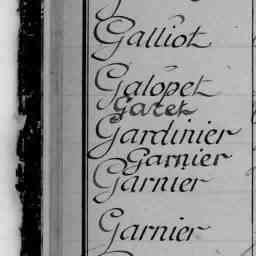 Galliot
Galopet
Garet
Gardinier
Garnier
Garnier
Garnier